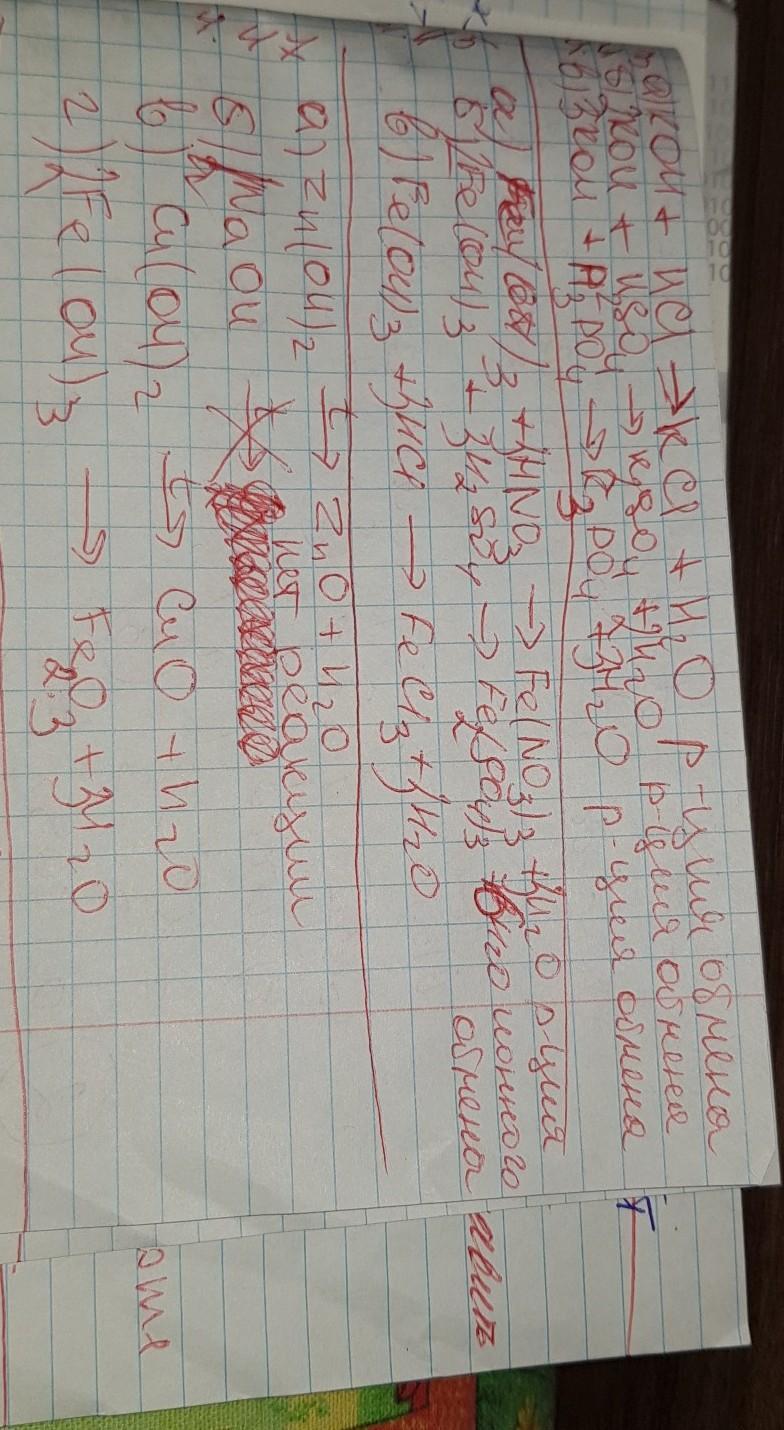 а) KOH + HCl → KCl + H2O р-ция обмена
б) 2KOH + H2SO4 → K2SO4 + 2H2O р-ция обмена
в) 3KOH + H3PO4 → K3PO4 + 3H2O р-ция обмена
а) Fe(OH)3 + 3HNO3 → Fe(NO3)3 + 3H2O р-ция
б) 2Fe(OH)3 + 3H2SO4 → Fe2(SO4)3 + 6H2O ионного
обмена
в) Fe(OH)3 + 3HCl → FeCl3 + 3H2O
а) Zn(OH)2 t→ ZnO + H2O
б) NaOH t→ нет реакции
в) Cu(OH)2 t→ CuO + H2O
г) 2Fe(OH)3 → Fe2O3 + 3H2O